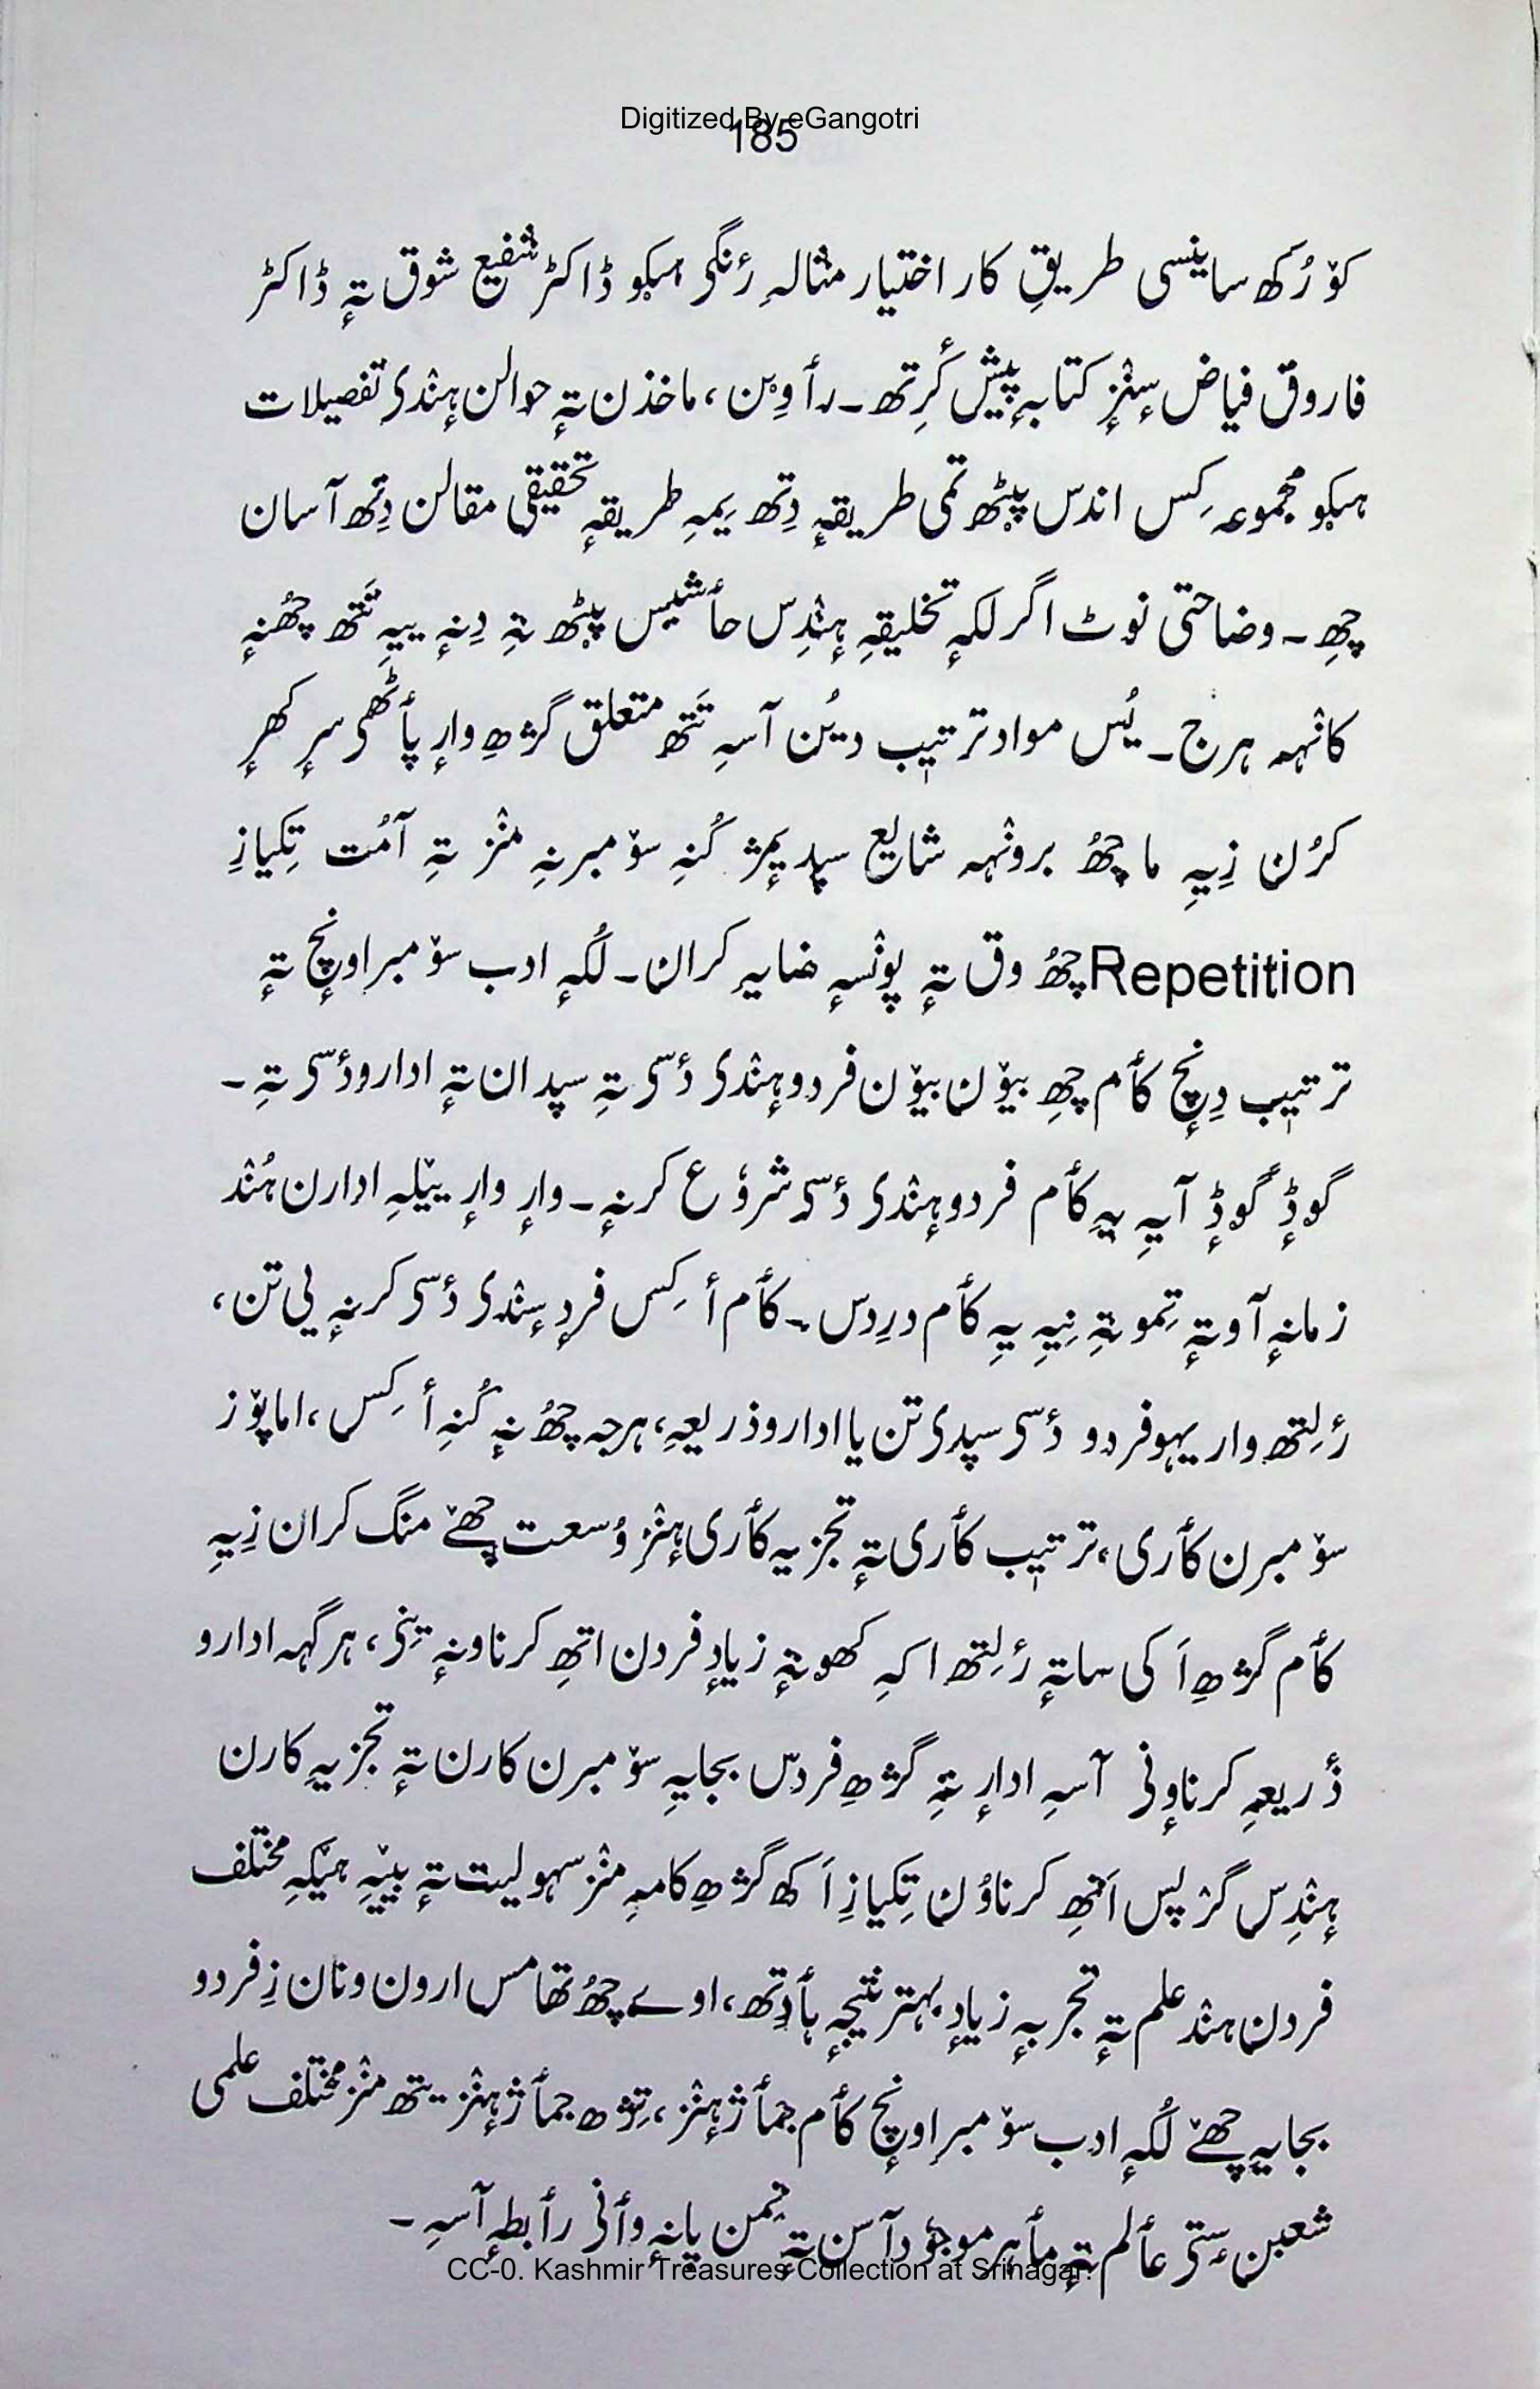 Digitized By eGangotri
185
کۆرُکھ ساینسی طریقِ کار اختیار مثالہِ رٔنگؠ ہیکو ڈاکٹر شفیع شوق تہٕ ڈاکٹر
فاروق فیاض سٕنٛز کتابہٕ پیش کٔرِتھ۔ رأوِین، ماخذن تہٕ حوالن ہٕنٛدؠ تفصیلات
ہیکو مجموعہ کِس اندس پیٚٹھ تمی طریقہٕ دِتھ یَمہِ طریقہٕ تحقیقی مقالن دِتھ آسان
چھِ۔ وضاحتی نوٹ اگر لکہٕ تخلیقہٕ ہٕنٛدِس حأشیس پیٚٹھ تہِ دِنہٕ ییہِ تَتھ چھُنہٕ
کانٛہہ ہرج۔ یُس مواد ترتیٖب دیُن آسہِ تَتھ متعلق گژھِ وارٕ پأٹھؠ سرٕ کھرٕ
کرُن زِیہِ ما چھُ برونٛہہ شایع سپدیمژ کُنہِ سۆمبرنہِ منٛز تہِ آمُت تِکیازِ
Repetition چھُ وق تہٕ پونٛسہٕ ضایہ کران۔ لُکہٕ ادب سۆمبراونٕچ تہٕ
ترتیٖب دِنٕچ کأم چھِ بیۆن بیۆن فردو ہٕنٛدؠ دٔسؠ تہِ سپدان تہٕ ادارو دٔسؠ تہِ۔
گوڈٕ گوڈٕ آیہِ یہِ کأم فردو ہٕنٛدؠ دٔسؠ شروٗع کرنہٕ۔ وارٕ وارٕ ییٚلہِ ادارن ہُنٛد
زمانہٕ آو تہٕ تِمو تہِ نِیہِ یہِ کأم دردِس۔ کأم أکِس فردٕ سٕنٛدؠ دٔسؠ کرنہٕ یی تن،
رٔلِتھ وار یہو فردو دٔسؠ سپدؠ تن یا ادارو ذریعہِ، ہرجہ چھُ نہٕ کُنہِ أکِس، اما پۆز
سۆمبرن کأری، ترتیٖب کأری تہٕ تجزیہ کأری ہٕنٛز وُسعت چھےٚ منگ کران زِیہِ
کأم گژھِ اَکی ساتہٕ رٔلِتھ اکہِ کھوتہٕ زیادٕ فردن اتھِ کرناونہٕ ینؠ، ہرگہہ ادارو
ذٔریعہِ کرناوٕنؠ آسہِ ادارٕ تہِ گژھِ فردس بجایہِ سۆمبرن کارن تہٕ تجزیہ کارن
ہٕنٛدِس گرٛپس اَتھِ کرناوُن تِکیازِ اَکھ گژھِ کامہِ منٛز سہولیت تہٕ بییہِ ہیٚکہِ مختلف
فردن ہنٛد علم تہٕ تجربہٕ زیادٕ بہتر نتیجہٕ بأدِتھ، اوے چھُ تھامس ارون ونان زِ فردو
بجایہِ چھےٚ لُکہٕ ادب سۆمبراونٕچ کأم جمأژ ہٕنٛز، تِژھ جمأژ ہٕنٛز یتھ منٛز مختلف علمی
شعبن سٟتؠ عألم تہٕ مأہر موجوٗد آسن تہٕ تِمن پانہٕ وأنؠ رأبطہٕ آسہِ۔
CC-0. Kashmir Treasures Collection at Srinagar.